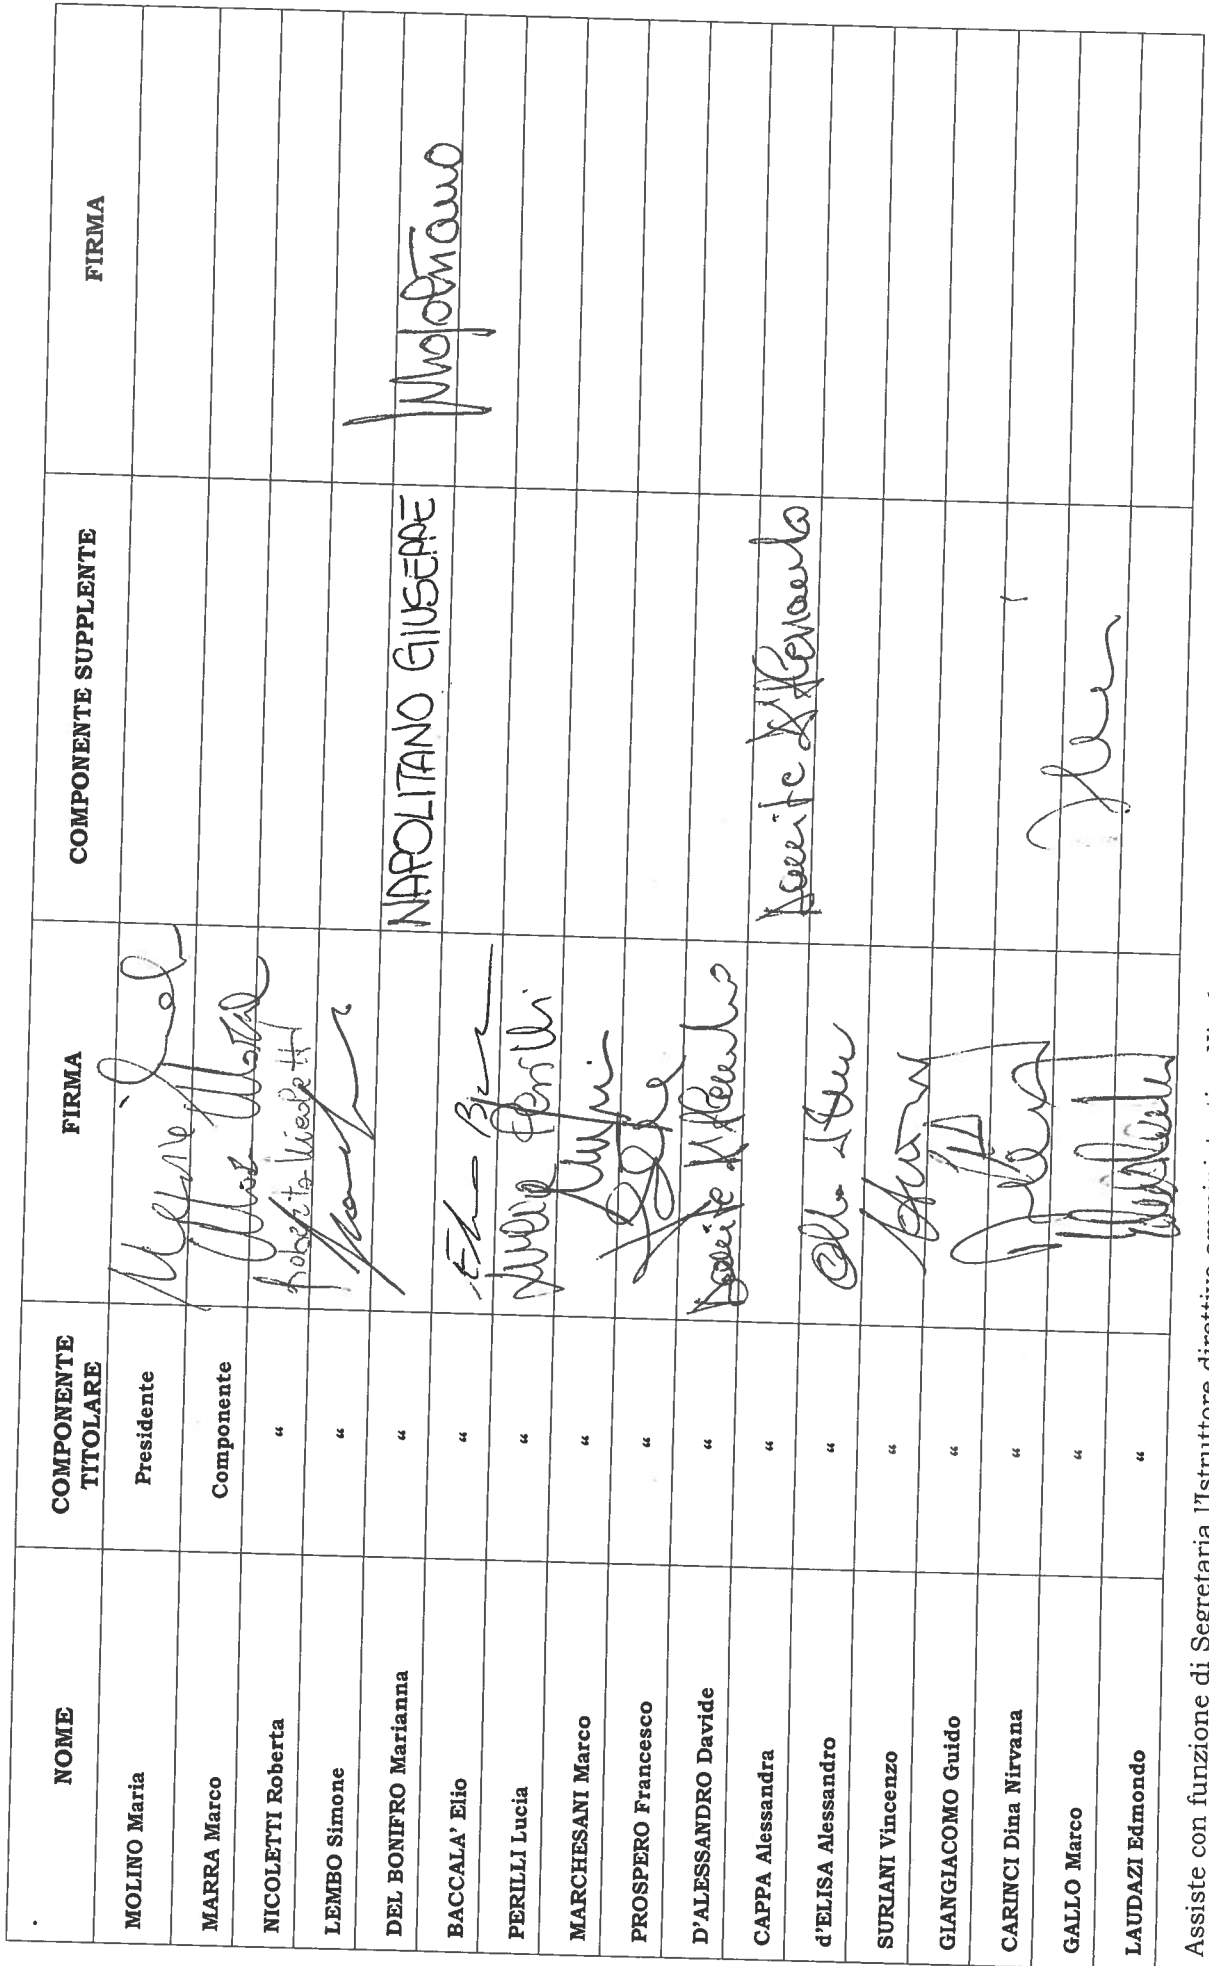 NOME COMPONENTE TITOLARE FIRMA COMPONENTE SUPPLENTE FIRMA
MOLINO Maria Presidente
MARRA Marco Componente
NICOLETTI Roberta “ Roberta Nicoletti
LEMBO Simone “
DEL BONIFRO Marianna “ NAPOLITANO GIUSEPPE Napolitano
BACCALA’ Elio “
PERILLI Lucia “ Perilli
MARCHESANI Marco “
PROSPERO Francesco “
D’ALESSANDRO Davide “ Davide D'Alessandro
CAPPA Alessandra “ Davide D'Alessandro
d’ELISA Alessandro “
SURIANI Vincenzo “
GIANGIACOMO Guido “
CARINCI Dina Nirvana “
GALLO Marco “
LAUDAZI Edmondo “
Assiste con funzione di Segretaria l’Istruttore direttivo amministrativo